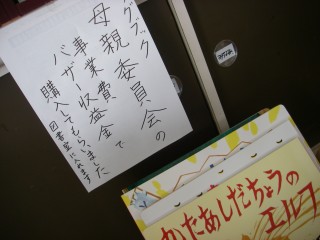 グブック
母親委員会の
事業費で
バザー収益金
購入してもらいました
図書室に入れます
かたあしだちょうの
エルフ